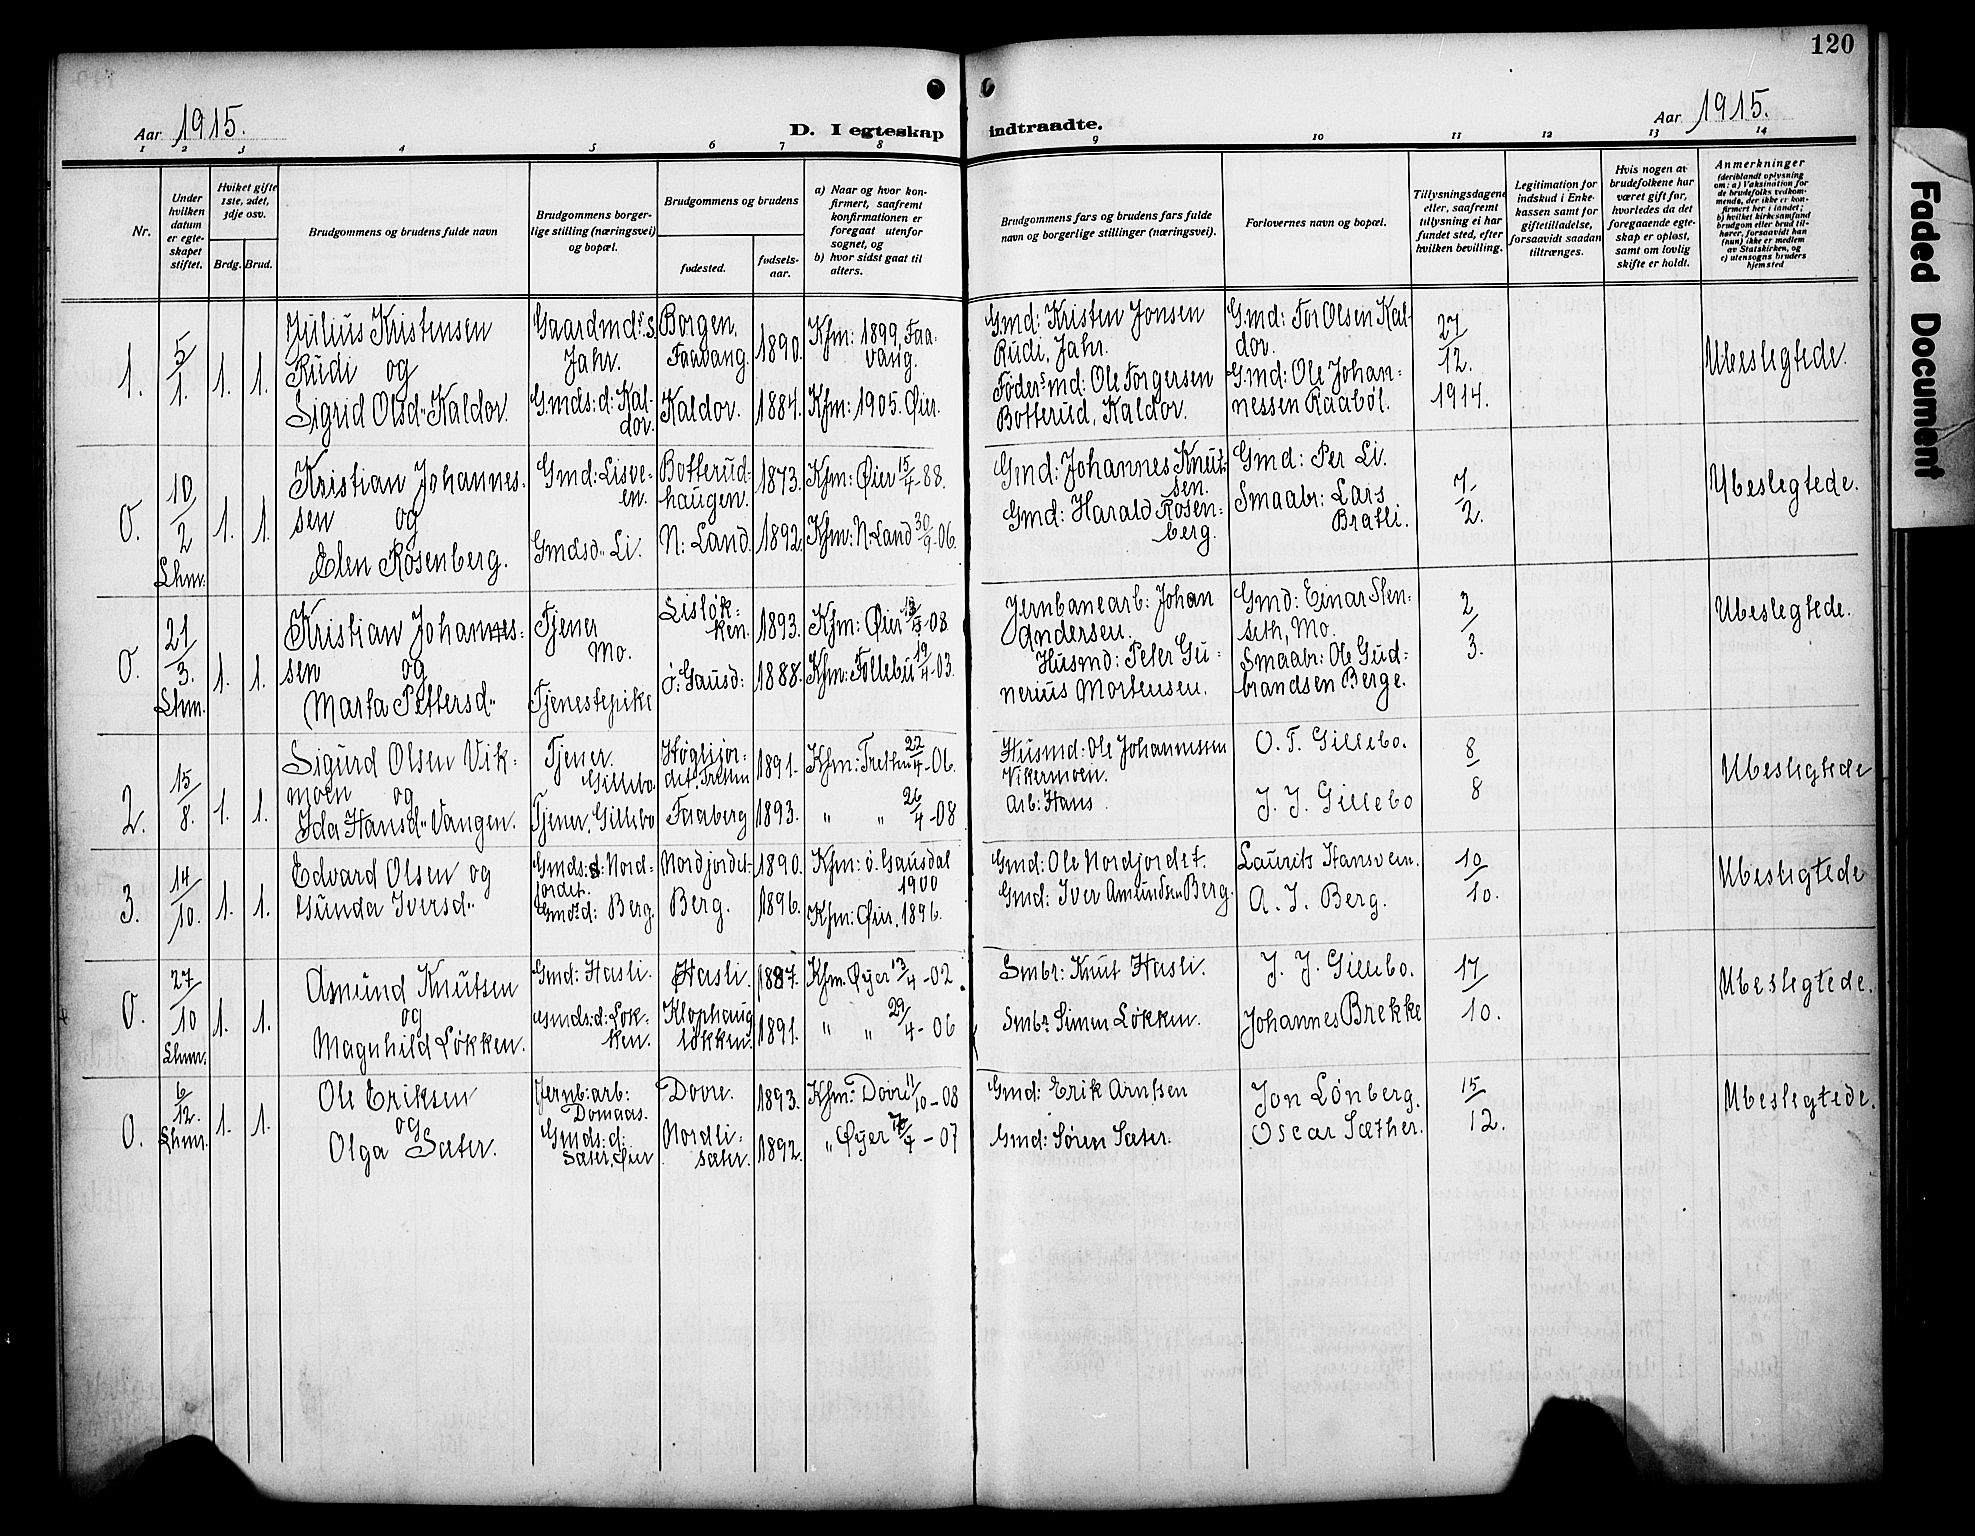 120
Aar 1915.
D. I egteskap indtraadte.
Aar 1915.
1 2 3 4 5 6 7 8 9 10 11 12 13 14
Nr.
Under hvilken datum er egteskapet stiftet.
Hviket gifte 1ste, 2det, 3dje osv.
Brdg. Brud.
Brudgommens og brudens fulde navn
Brudgommens borgerlige stilling (næringsvei) og bopæl.
Brudgommens og brudens
fødested.
fødselsaar.
a) Naar og hvor konfirmert, saafremt konfirmationen er foregaat utenfor sognet, og
b) hvor sidst gaat til alters.
Brudgommens fars og brudens fars fulde navn og borgerlige stillinger (næringsvei).
Forlovernes navn og bopæl.
Tillysningsdagene eller, saafremt tillysning ei har fundet sted, efter hvilken bevilling.
Legitimation for indskud i Enkekassen samt for giftetilladelse, forsaavidt saadan tiltrænges.
Hvis nogen av brudefolkene har været gift før, hvorledes da det foregaaende egteskap er opløst, samt om lovlig skifte er holdt.
Anmerkninger
(deriblandt oplysning om: a) Vaksination for de brudefolks vedkommende, der ikke er konfirmert her i landet; b) hvilket kirkesamfund brudgom eller brud tilhører, forsaavidt han (hun) ikke er medlem av Statskirken, og c) utensogns bruders hjemsted
1. 5/1. 1. 1.
Julius Kristensen
Rudi og
Sigrid Olsd. Kaldor.
Gaardmds. s.
Jahr.
Gmds: d: Kal-
dor.
Borgen,
Faavang.
Kaldor.
1890.
1884.
Kfm: 1899, Faa-
vang.
Kfm: 1905. Øier.
Gmd: Kristen Jonsen
Rudi, Jahr.
Føder.md: Ole Torgersen
Botterud, Kaldor.
Gmd: Tor Olsen Kal-
dor.
Gmd: Ole Johan-
nessen Raabøl.
27/12.
1914.
Ubeslegtede.
0. 10/2 Lhmr. 1. 1.
Kristian Johannes-
sen og
Elen Rosenberg.
Gmd: Lisve-
en.
Gmdsd. Li.
Botterud-
haugen.
N: Land.
1873.
1892.
Kfm: Øier 15/4-88.
Kfm: N: Land 30/9-06.
Gmd: Johannes Knut-
sen.
Gmd: Harald Rosen-
berg.
Gmd: Per Li.
Smaabr: Lars
Bratli.
7/2.
Ubeslegtede.
0. 21/3. Lhmr. 1. 1.
Kristian Johannes-
sen og
Marta Pettersd.
Tjener
Mo.
Tjenestepike
Lisløk-
ken.
Ø: Gausd:
1893.
1888.
Kfm: Øier -08
Kfm: Follebu 19/4-03.
Jernbanearb: Johan
Andersen.
Husmd: Peter Gu-
nerius Mortensen.
Gmd: Einar Sten-
seth, Mo.
Smaabr: Ole Gud-
brandsen Berge.
2/3.
Ubeslegtede.
2. 15/8. 1. 1.
Sigurd Olsen Vik-
moen og
Ida Hansd. Vangen.
Tjener.
Gillebo
Tjener, Gillebo
Høglijor-
det, Tretten
Faaberg
1891.
1893.
Kfm: Tretten 22/4-06.
" " 26/4-08
Husmd: Ole Johannessen
Vikermoen.
Arb: Hans
O. T. Gillebo.
J. J. Gillebo
8/8
Ubeslegtede
3. 14/10. 1. 1.
Edvard Olsen og
Gunda Iversd.
Gmds: s: Nord-
jordet.
Gmds: d: Berg.
Nordjordet.
Berg.
1890.
1896.
Kfm: Ø. Gausdal
1900
Kfm: Øier, 1896.
Gmd: Ole Nordjordet.
Gmd: Iver Amundsen Berg.
Laurits Hansvein.
A. I. Berg.
10/10.
Ubeslegtede
0. 27/10 Lhmr. 1. 1.
Amund Knutsen
og
Magnhild Løkken.
Gmd: Hasli.
Gmds: d: Løk-
ken.
Hasli.
Klophaug
løkken.
1887.
1891.
Kfm. Øyer 13/4-02
" " 29/4-06
Smbr: Knut Hasli.
Smbr Simen Løkken.
J. J. Gillebo.
Johannes Brekke
17/10.
Ubeslegtede.
0. 6/12. Lhmr. 1. 1.
Ole Eriksen
og
Olga Sæter.
Jernb: arb:
Domaas.
Gmds: d:
Sæter, Øier
Dovre.
Nordli-
sæter.
1893.
1892.
Kfm: Dovre 11/10-08
" Øyer -07
Gmd: Erik Arntsen
Gmd: Søren Sæter.
Jon Lønberg.
Oscar Sæther.
15/12.
Ubeslegtede.
Faded Document